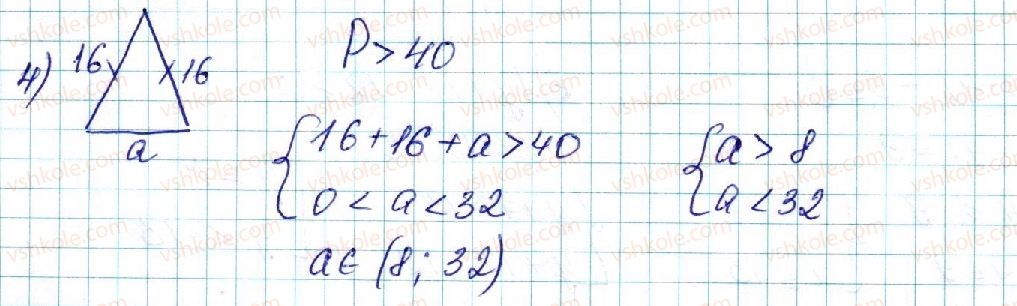 4) 16 16 P > 40
a
{ 16 + 16 + a > 40 { a > 8
0 < a < 32 a < 32
a ∈ (8; 32)
vshkole.com